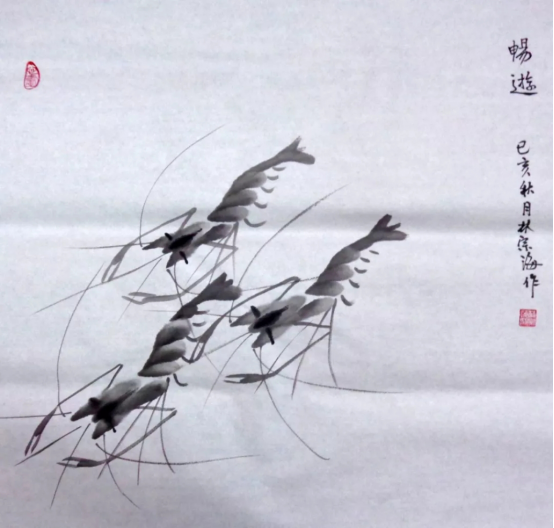 暢遊
己亥秋月林宗海作